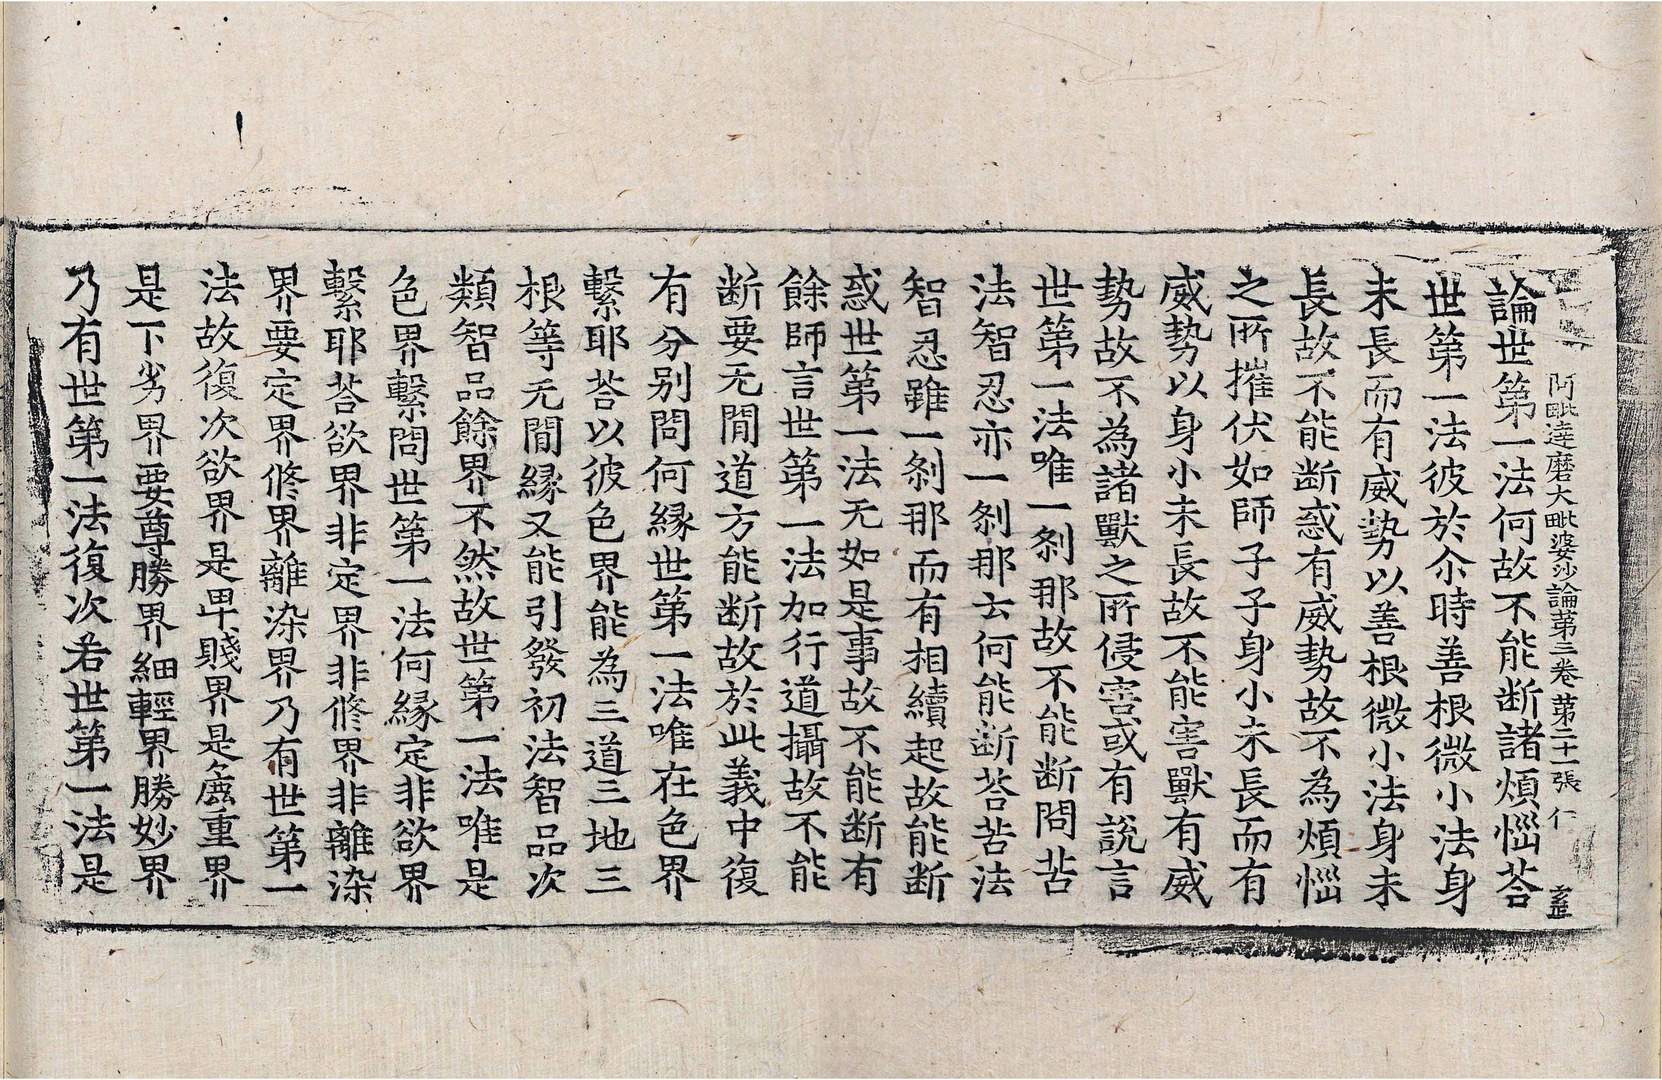 阿毗達磨大毗婆沙論第三卷 第二十一張 仁
論世第一法何故不能断諸煩惱荅
世第一法彼於尒時善根微小法身
未長而有威勢以善根微小法身未
長故不能断惑有威勢故不為煩惱
之所摧伏如師子子身小未長而有
威勢以身小未長故不能害獸有威
勢故不為諸獸之所侵害或有說言
世第一法唯一剎那故不能断問苦
法智忍亦一剎那云何能断荅苦法
智忍雖一剎那而有相續起故能断
惑世第一法无如是事故不能断有
餘師言世第一法加行道攝故不能
断要无間道方能断故於此義中復
有分别問何緣世第一法唯在色界
繫耶荅以彼色界能為三道三地三
根等无間緣又能引發初法智品次
類智品餘界不然故世第一法唯是
色界繫問世第一法何緣定非欲界
繫耶荅欲界非定界非修界非離染
界要定界修界離染界乃有世第一
法故復次欲界是卑賤界是麁重界
是下劣界要尊勝界細輕界勝妙界
乃有世第一法復次若世第一法是